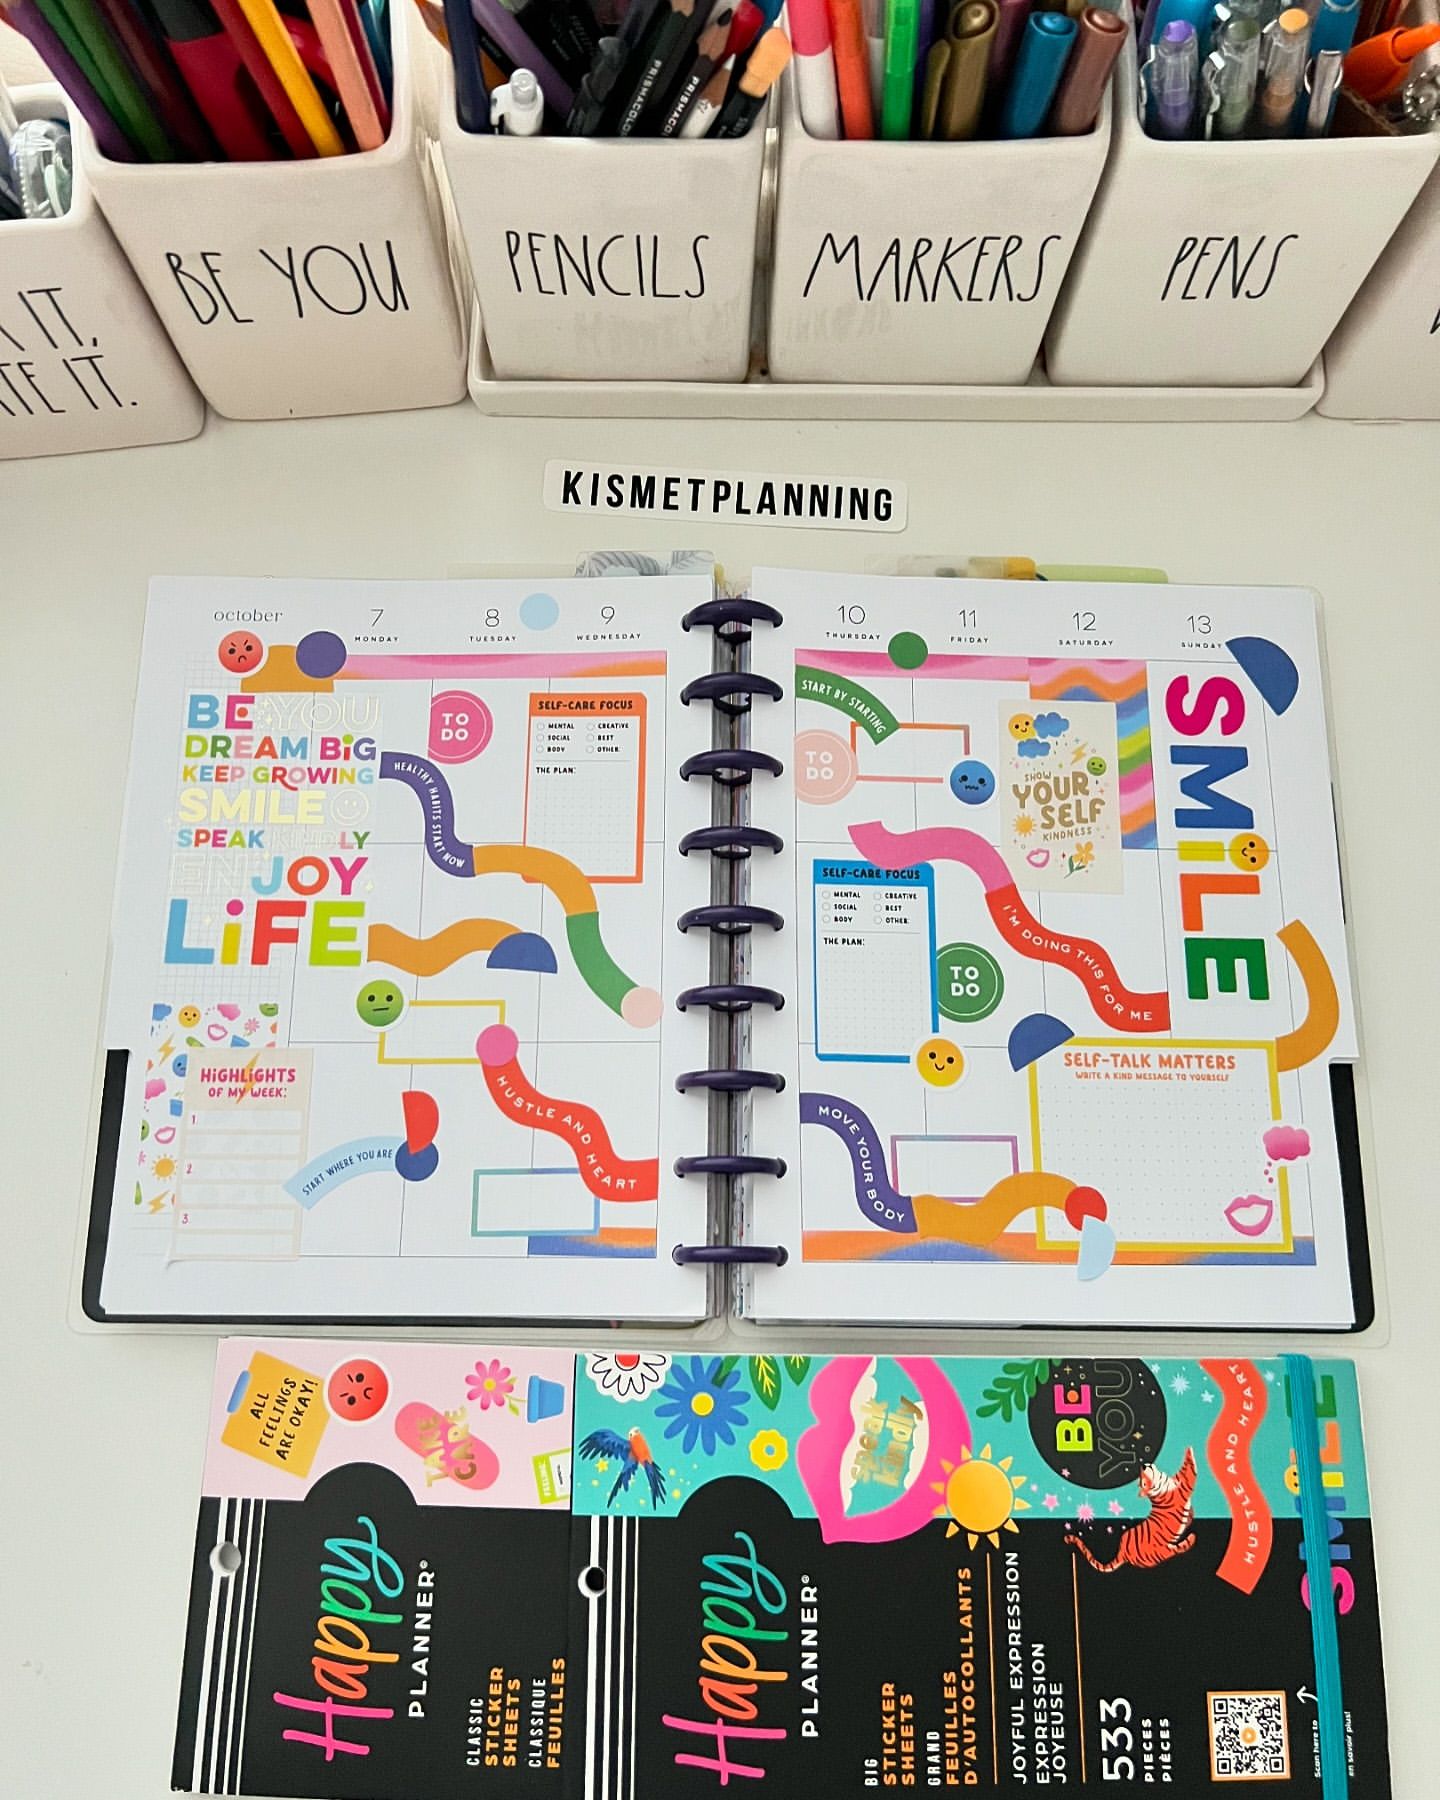 IT,
TE IT.
BE YOU
PENCILS
MARKERS
PENS
PRISMACOLOR
PRISMACO
KISMETPLANNING
october
7
MONDAY
8
TUESDAY
9
WEDNESDAY
10
THURSDAY
11
FRIDAY
12
SATURDAY
13
SUNDAY
BE YOU
DREAM BiG
KEEP GROWING
SMILE
SPEAK KINDLY
ENJOY
LiFE
TO
DO
SELF-CARE FOCUS
MENTAL
CREATIVE
SOCIAL
REST
BODY
OTHER:
THE PLAN:
HEALTHY HABITS START NOW
HiGHLiGHTS
OF MY WEEK:
1
2
3
START WHERE YOU ARE
HUSTLE AND HEART
START BY STARTING
TO
DO
SHOW
YOUR
SELF
KINDNESS
SMiLE
SELF-CARE FOCUS
MENTAL
CREATIVE
SOCIAL
REST
BODY
OTHER:
THE PLAN:
TO
DO
I'M DOING THIS FOR ME
MOVE YOUR BODY
SELF-TALK MATTERS
WRITE A KIND MESSAGE TO YOURSELF
ALL
FEELINGS
ARE OKAY!
TAKE
CARE
FEELING
Happy
PLANNER®
CLASSIC
STICKER
SHEETS
CLASSIQUE
FEUILLES
speak
kindly
BE
YOU
HUSTLE AND HEART
SMiLE
Happy
PLANNER®
BIG
STICKER
SHEETS
GRAND
FEUILLES
D'AUTOCOLLANTS
JOYFUL EXPRESSION
EXPRESSION
JOYEUSE
533
PIECES
PIÈCES
Scan here to
en savoir plus!